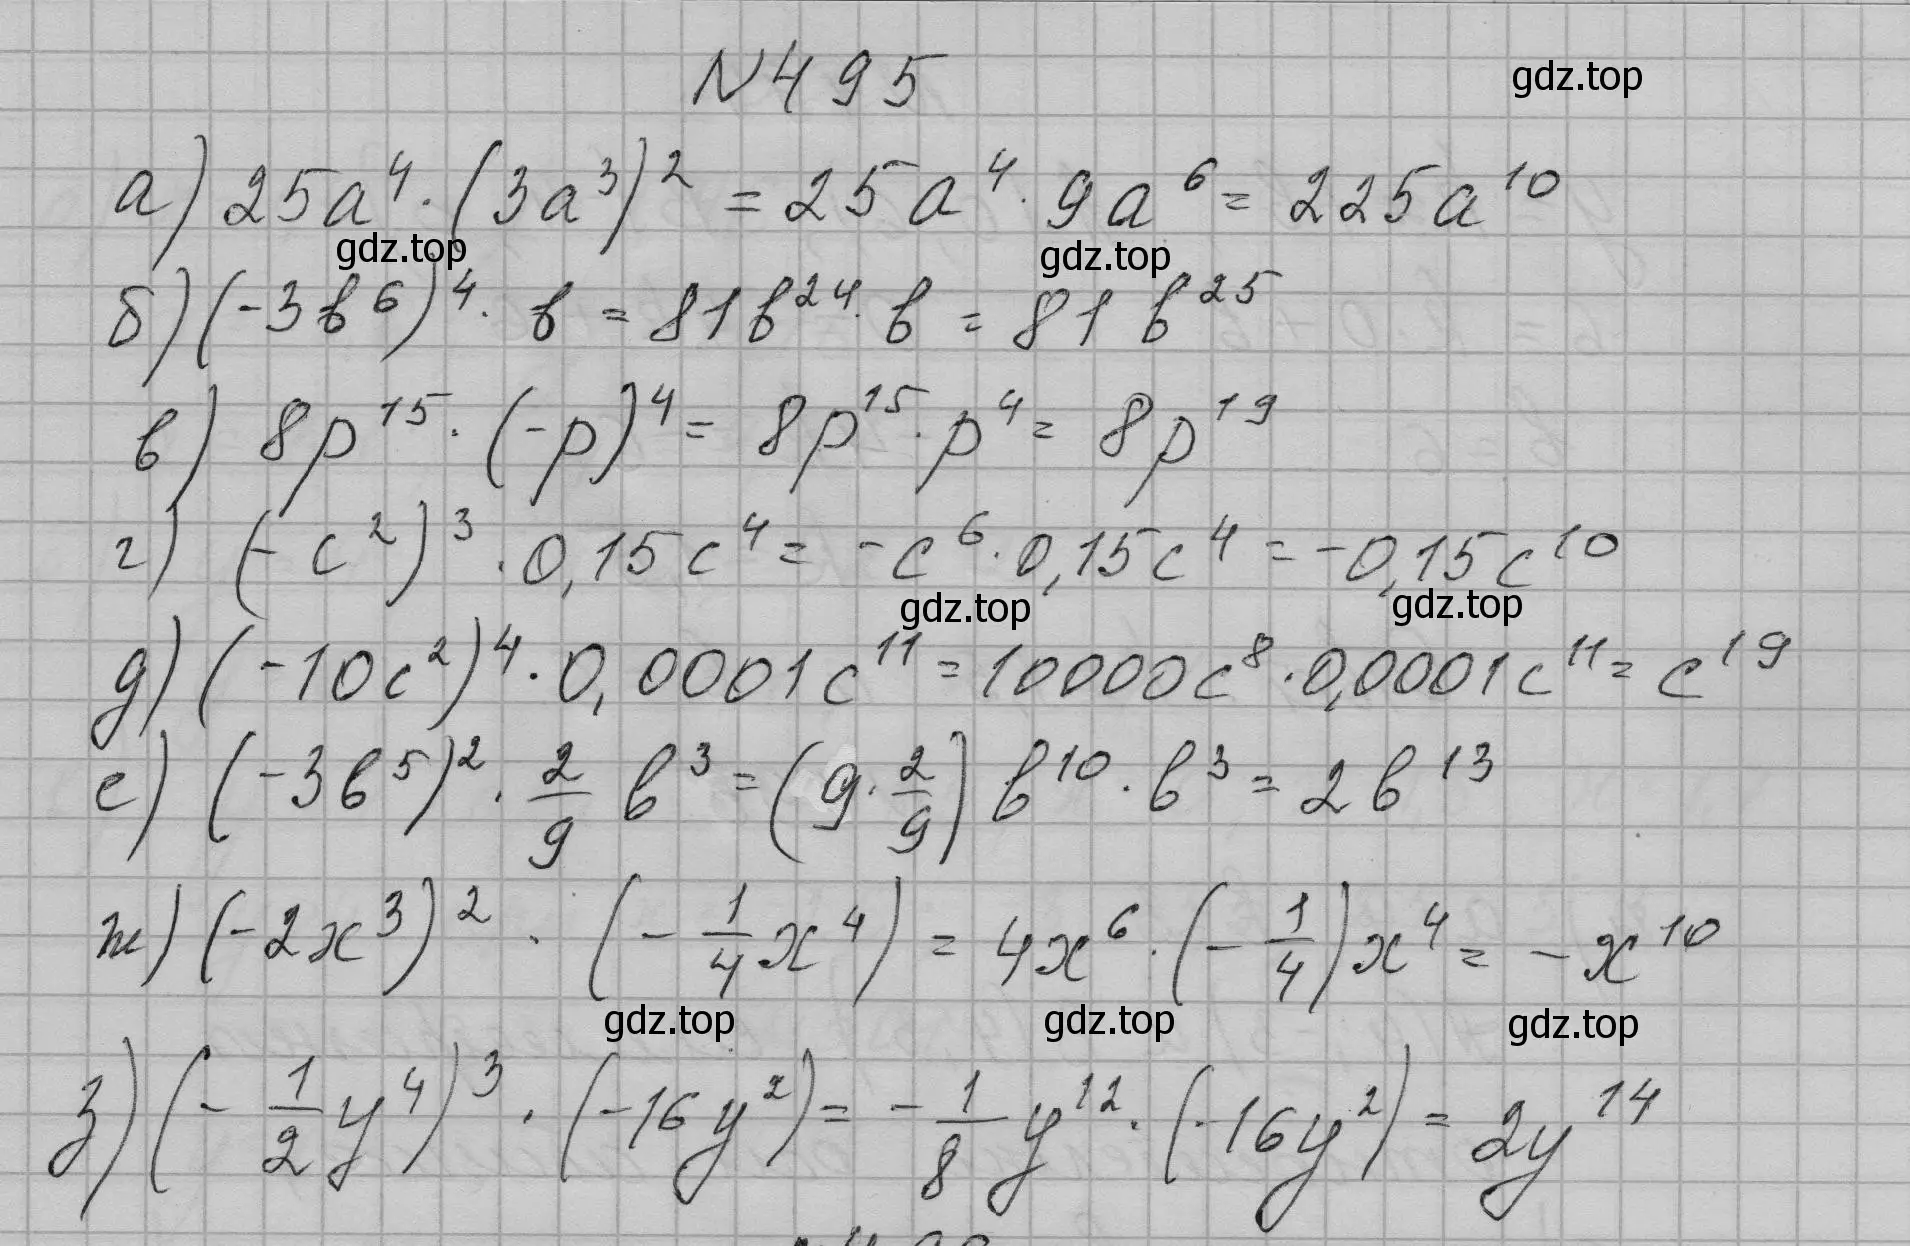 N 495
gdz.top
а) 25a⁴ · (3a³)² = 25a⁴ · 9a⁶ = 225a¹⁰
gdz.top gdz.top
б) (-3b⁶)⁴ · b = 81b²⁴ · b = 81b²⁵
в) 8p¹⁵ · (-p)⁴ = 8p¹⁵ · p⁴ = 8p¹⁹
г) (-c²)³ · 0,15c⁴ = -c⁶ · 0,15c⁴ = -0,15c¹⁰
gdz.top gdz.top
д) (-10c²)⁴ · 0,0001c¹¹ = 10000c⁸ · 0,0001c¹¹ = c¹⁹
е) (-3b⁵)² · 2/9 b³ = (9 · 2/9) b¹⁰ · b³ = 2b¹³
ж) (-2x³)² · (-1/4 x⁴) = 4x⁶ · (-1/4) x⁴ = -x¹⁰
gdz.top gdz.top gdz.top
з) (-1/2 y⁴)³ · (-16y²) = -1/8 y¹² · (-16y²) = 2y¹⁴